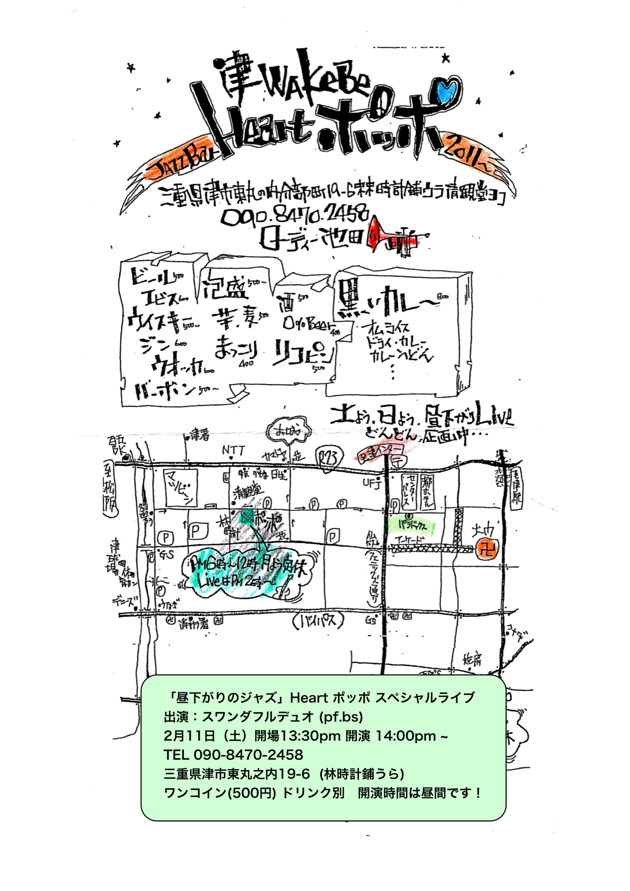 津 WAKeBe
Heart ポッポ
JAZZ Bar
2011~
三重県津市東丸の内分部町19-6 林時計鋪ウラ 清観堂ヨコ
090.8470.2458
ローディー池田
ビール 500
エビス 600
ウイスキー 500~
ジン 600
ウオッカ 600
バーボン 500~
泡盛 500~
芋.麦 500
まっこり 400
酒 500
0% Beer 400
リコピン 500
黒いカレー 800
オムライス
ドライ・カレー
カレーうどん
土よう、日よう、昼下がりLive
どんどん企画中…
津署
NTT
お城
R23
至松阪
マツビシ
清観堂
UFJ
センターパレス
都ホテル
P
P
P
P
ポッポ
パラボックス
アーケード
GS
フェニックス通り
PM6時~12時 月よう定休
LiveはPM2時~
デニーズ
うなぎ
消防署
(バイパス)
GS
「昼下がりのジャズ」Heart ポッポ スペシャルライブ
出演：スワンダフルデュオ (pf.bs)
2月11日（土）開場13:30pm 開演 14:00pm ~
TEL 090-8470-2458
三重県津市東丸之内19-6（林時計鋪うら）
ワンコイン(500円) ドリンク別　開演時間は昼間です！